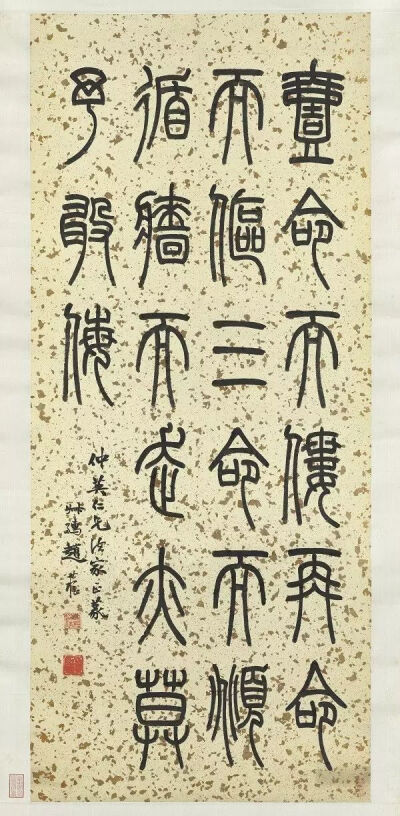 壹命而僂再命
而傴三命而頫
循牆而走亦莫
予敢侮
仲英仁兄法家正篆
叔孺趙